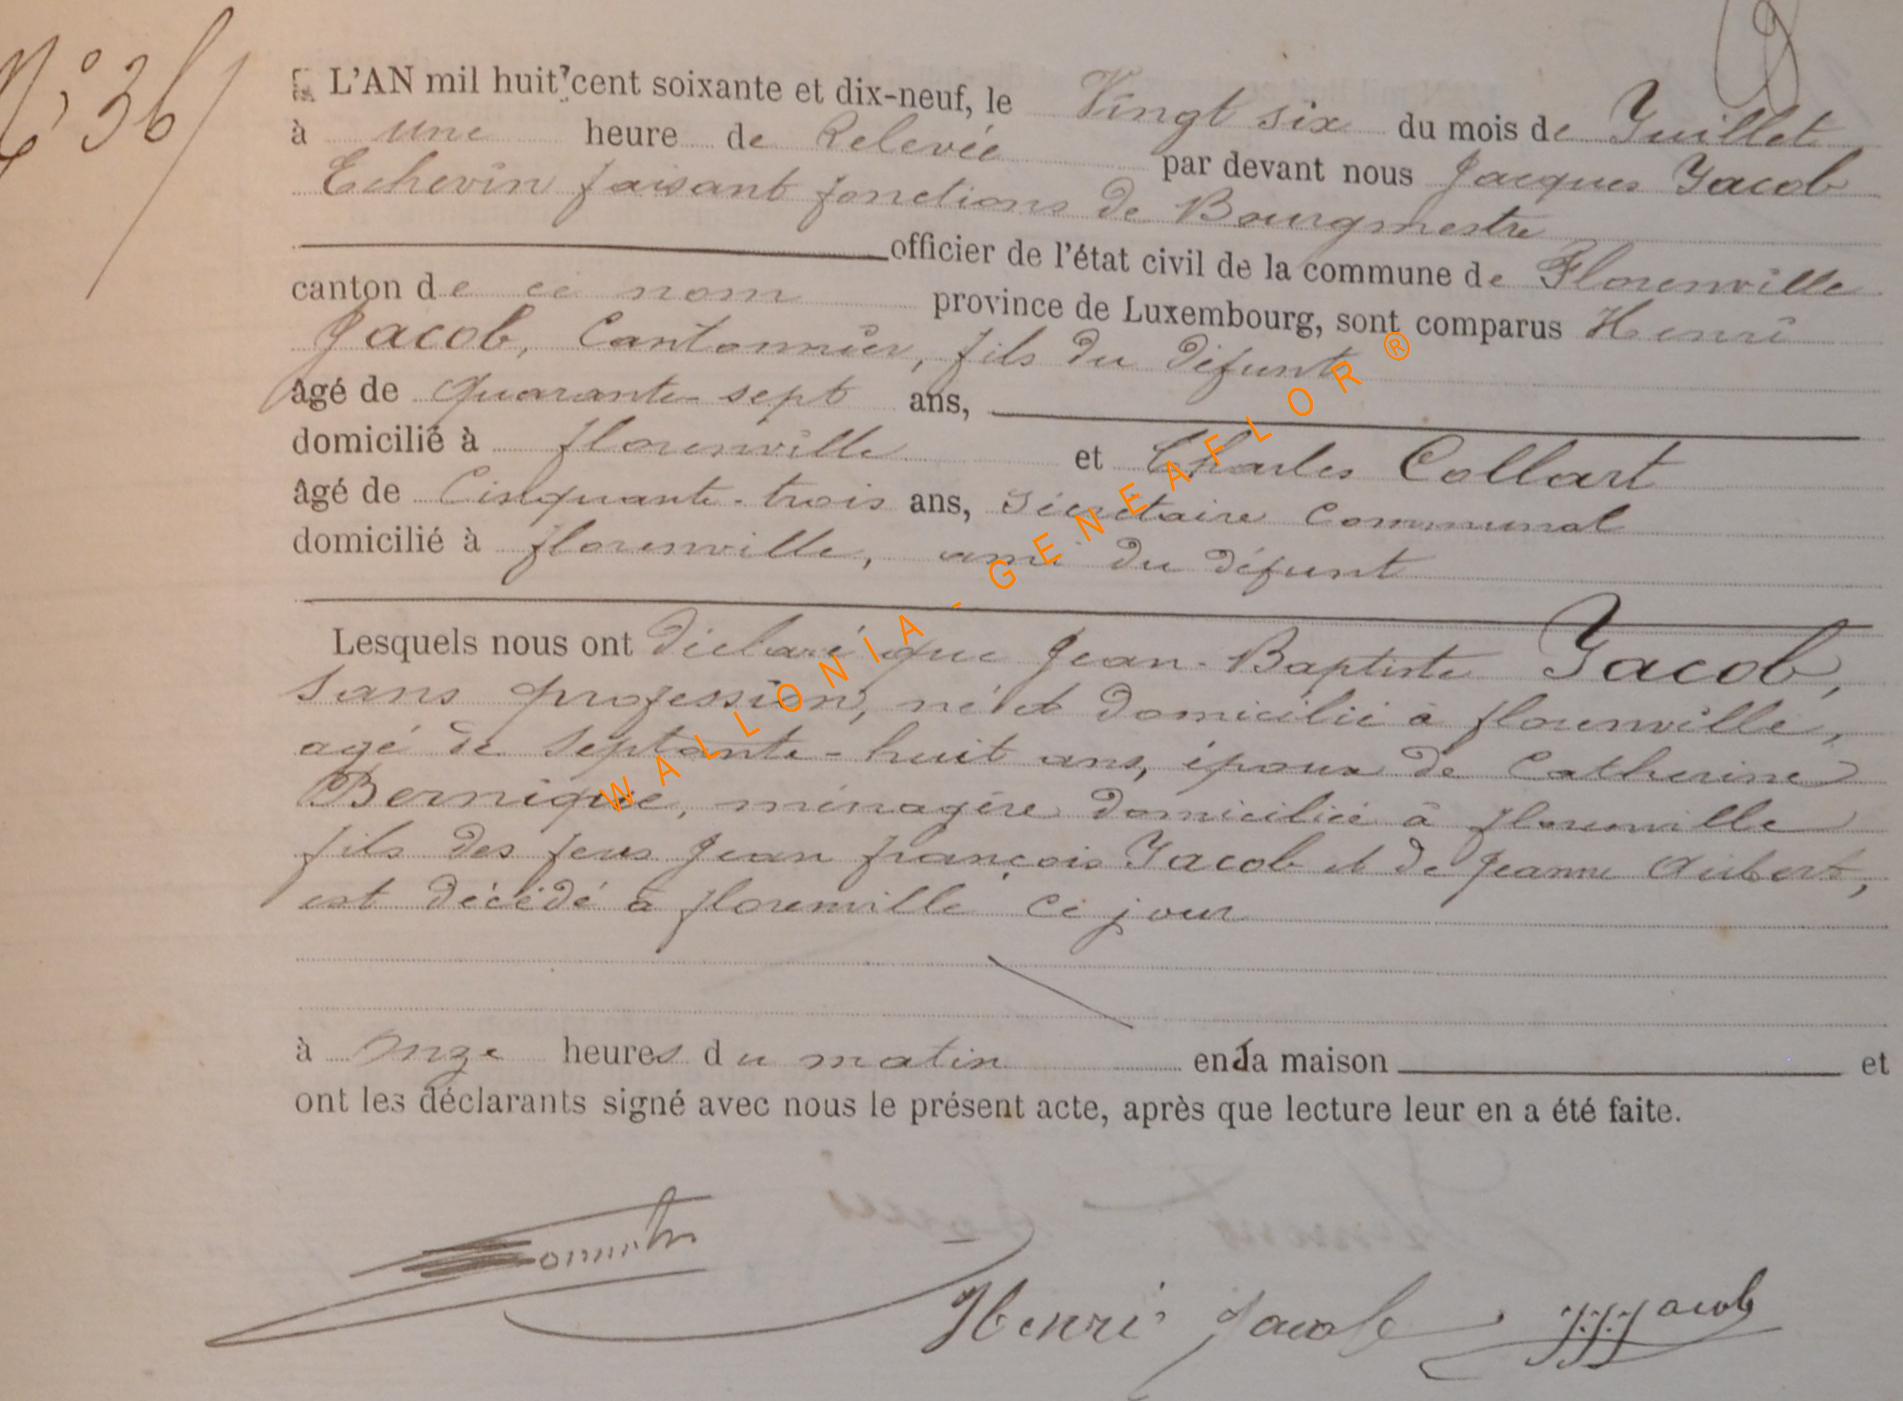 N° 36
L'AN mil huit cent soixante et dix-neuf, le Vingt six du mois de Juillet
à une heure de Relevée par devant nous Jacques Jacob
Echevin faisant fonctions de Bourgmestre
officier de l'état civil de la commune de Florenville
canton de ce nom province de Luxembourg, sont comparus Henri
Jacob, Cantonnier, fils du défunt
âgé de quarante-sept ans,
domicilié à florenville et Charles Collart
âgé de Cinquante-trois ans, Sécrétaire Communal
domicilié à florenville, ami du défunt
Lesquels nous ont déclaré que Jean-Baptiste Jacob,
Sans profession, né et domicilié à florenville,
agé de Septante-huit ans, époux de Catherine
Bernique, ménagère domiciliée à florenville
fils des feus Jean françois Jacob et de Jeanne Aubert,
est décédé à florenville ce jour
à Onze heures du matin en la maison et
ont les déclarants signé avec nous le présent acte, après que lecture leur en a été faite.
Henri Jacob J.J. Jacob
WALLONIA-GENEAFLOR®